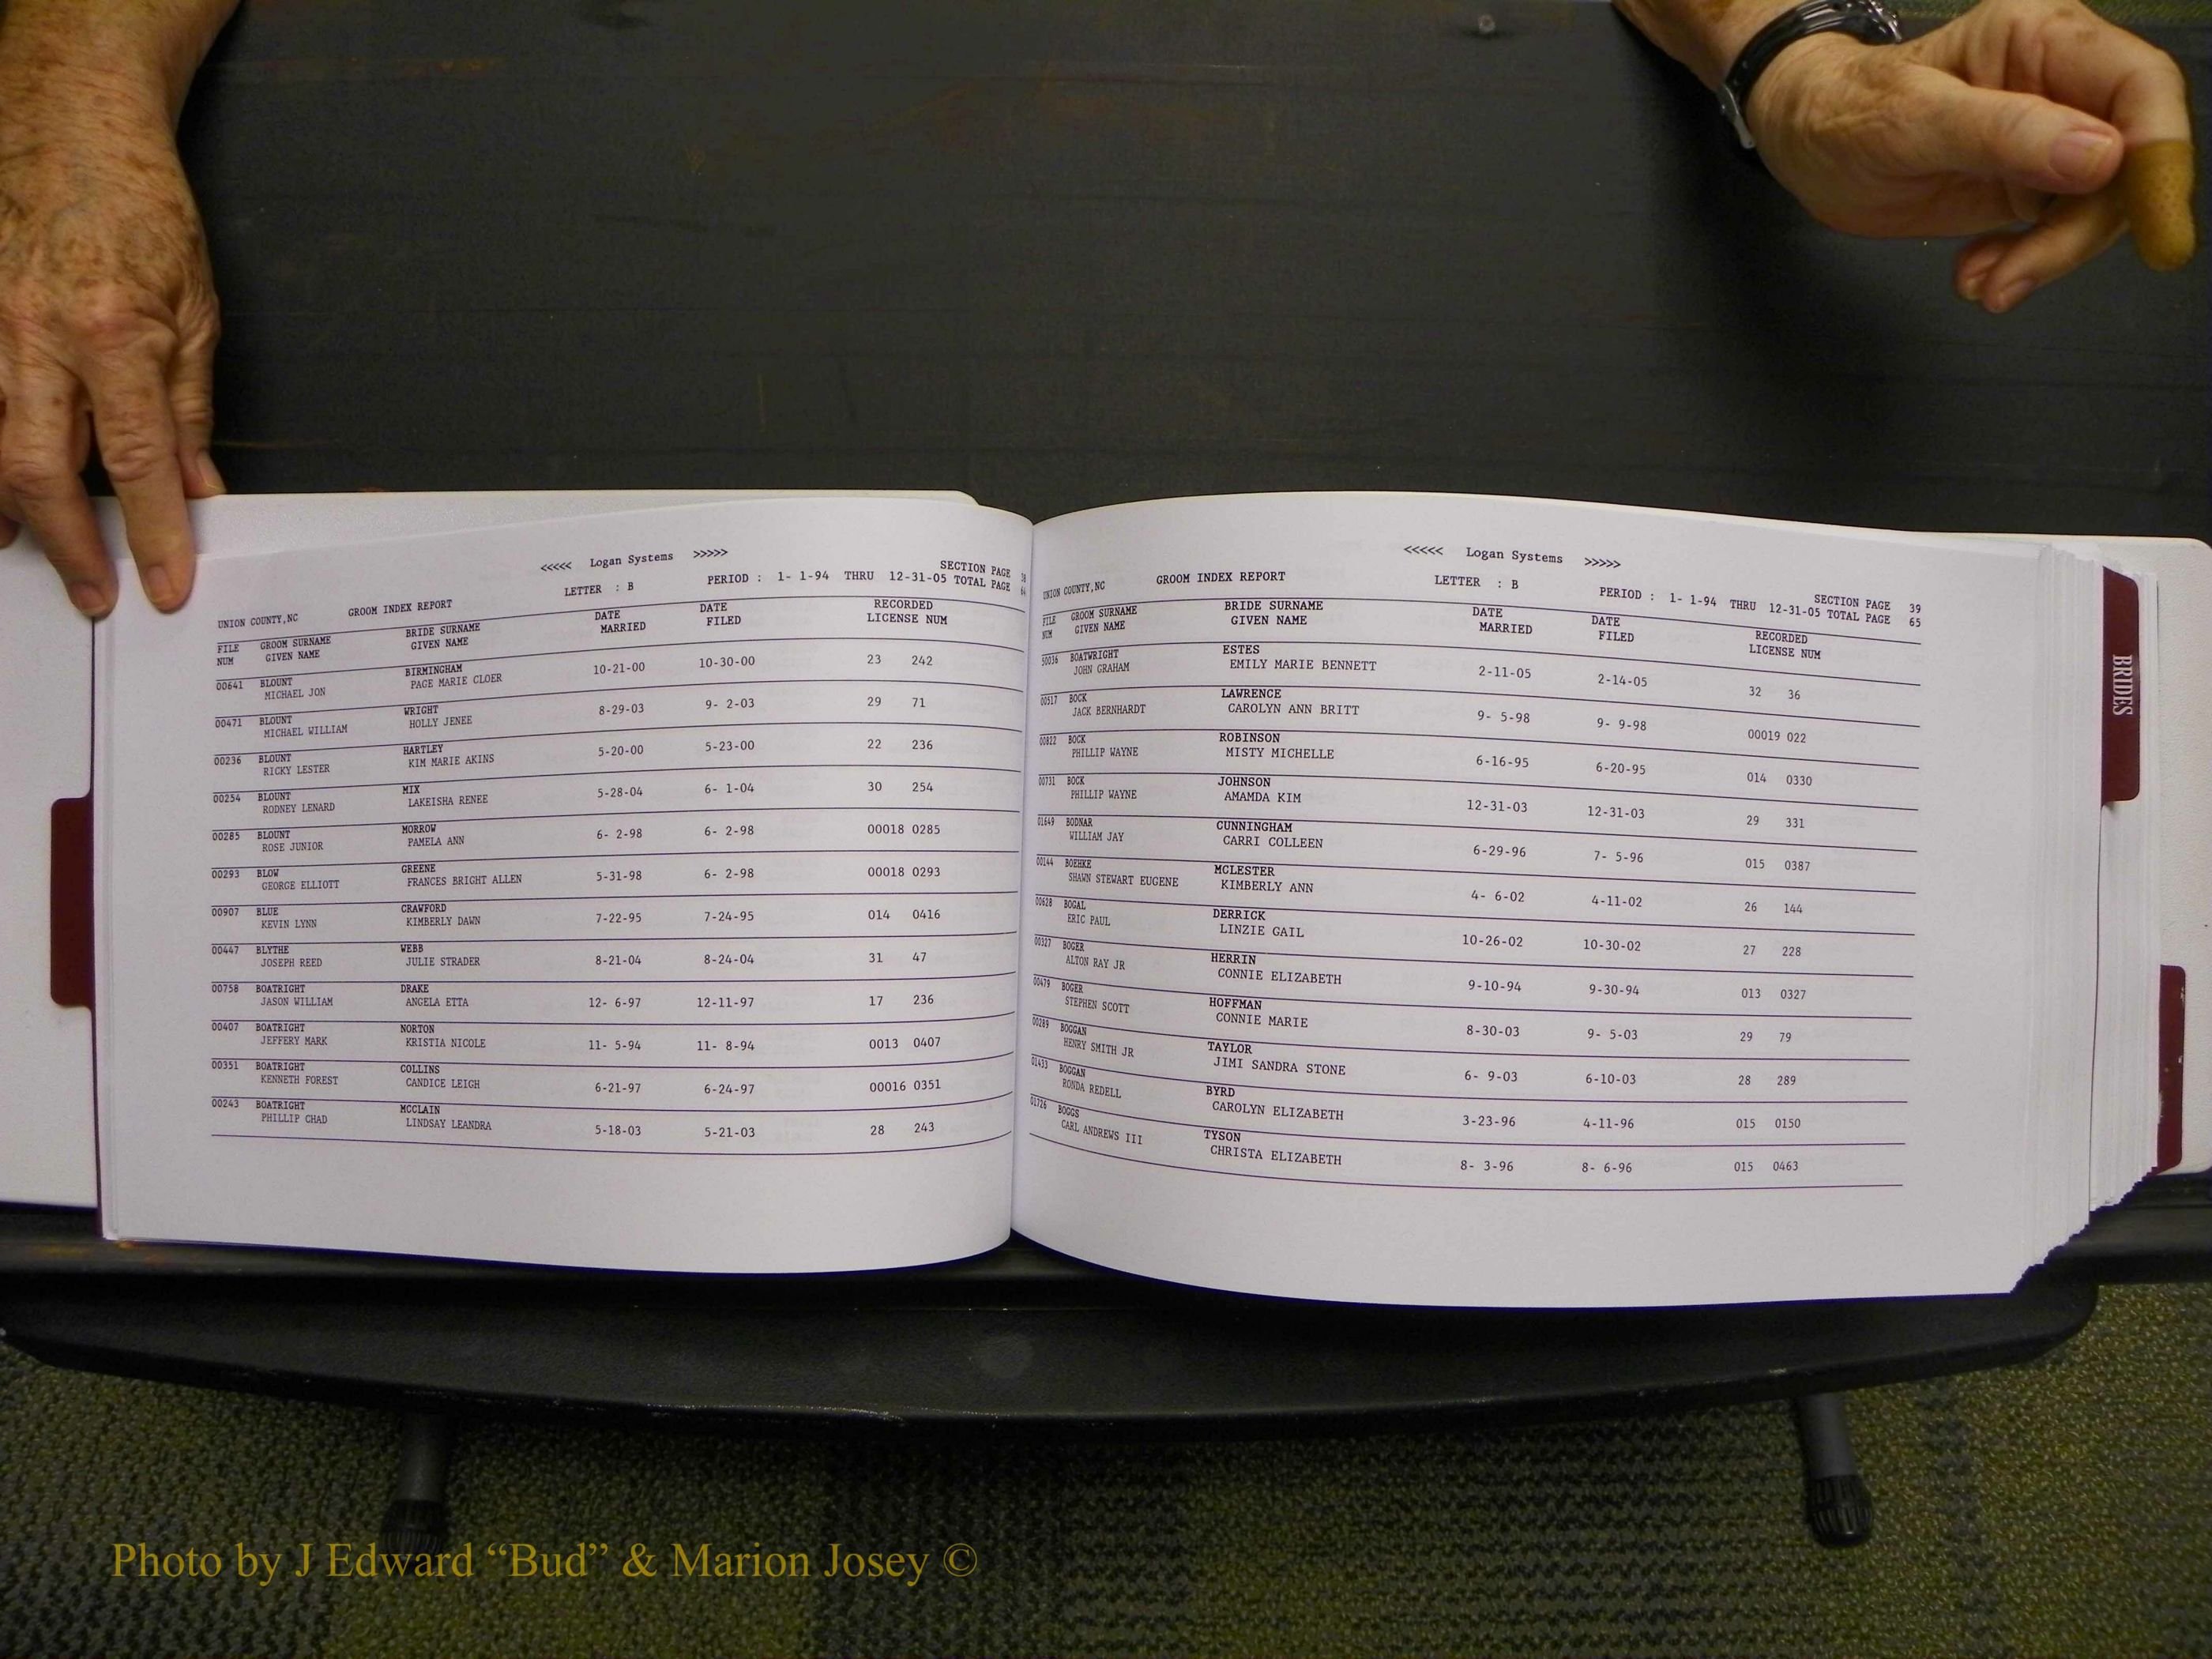 <<<<< Logan Systems >>>>>
SECTION PAGE 38
UNION COUNTY,NC GROOM INDEX REPORT LETTER : B PERIOD : 1- 1-94 THRU 12-31-05 TOTAL PAGE 64
FILE GROOM SURNAME BRIDE SURNAME DATE DATE RECORDED
NUM GIVEN NAME GIVEN NAME MARRIED FILED LICENSE NUM
00641 BLOUNT BIRMINGHAM 10-21-00 10-30-00 23 242
MICHAEL JON PAGE MARIE CLOER
00471 BLOUNT WRIGHT 8-29-03 9- 2-03 29 71
MICHAEL WILLIAM HOLLY JENEE
00236 BLOUNT HARTLEY 5-20-00 5-23-00 22 236
RICKY LESTER KIM MARIE AKINS
00254 BLOUNT MIX 5-28-04 6- 1-04 30 254
RODNEY LENARD LAKEISHA RENEE
00285 BLOUNT MORROW 6- 2-98 6- 2-98 00018 0285
ROSE JUNIOR PAMELA ANN
00293 BLOW GREENE 5-31-98 6- 2-98 00018 0293
GEORGE ELLIOTT FRANCES BRIGHT ALLEN
00907 BLUE CRAWFORD 7-22-95 7-24-95 014 0416
KEVIN LYNN KIMBERLY DAWN
00447 BLYTHE WEBB 8-21-04 8-24-04 31 47
JOSEPH REED JULIE STRADER
00758 BOATRIGHT DRAKE 12- 6-97 12-11-97 17 236
JASON WILLIAM ANGELA ETTA
00407 BOATRIGHT NORTON 11- 5-94 11- 8-94 0013 0407
JEFFERY MARK KRISTIA NICOLE
00351 BOATRIGHT COLLINS 6-21-97 6-24-97 00016 0351
KENNETH FOREST CANDICE LEIGH
00243 BOATRIGHT MCCLAIN 5-18-03 5-21-03 28 243
PHILLIP CHAD LINDSAY LEANDRA
<<<<< Logan Systems >>>>>
SECTION PAGE 39
UNION COUNTY,NC GROOM INDEX REPORT LETTER : B PERIOD : 1- 1-94 THRU 12-31-05 TOTAL PAGE 65
FILE GROOM SURNAME BRIDE SURNAME DATE DATE RECORDED
NUM GIVEN NAME GIVEN NAME MARRIED FILED LICENSE NUM
50036 BOATWRIGHT ESTES 2-11-05 2-14-05 32 36
JOHN GRAHAM EMILY MARIE BENNETT
00517 BOCK LAWRENCE 9- 5-98 9- 9-98 00019 022
JACK BERNHARDT CAROLYN ANN BRITT
00822 BOCK ROBINSON 6-16-95 6-20-95 014 0330
PHILLIP WAYNE MISTY MICHELLE
00731 BOCK JOHNSON 12-31-03 12-31-03 29 331
PHILLIP WAYNE AMAMDA KIM
01649 BODNAR CUNNINGHAM 6-29-96 7- 5-96 015 0387
WILLIAM JAY CARRI COLLEEN
00144 BOEHKE MCLESTER 4- 6-02 4-11-02 26 144
SHAWN STEWART EUGENE KIMBERLY ANN
00628 BOGAL DERRICK 10-26-02 10-30-02 27 228
ERIC PAUL LINZIE GAIL
00327 BOGER HERRIN 9-10-94 9-30-94 013 0327
ALTON RAY JR CONNIE ELIZABETH
00479 BOGER HOFFMAN 8-30-03 9- 5-03 29 79
STEPHEN SCOTT CONNIE MARIE
00289 BOGGAN TAYLOR 6- 9-03 6-10-03 28 289
HENRY SMITH JR JIMI SANDRA STONE
01433 BOGGAN BYRD 3-23-96 4-11-96 015 0150
RONDA REDELL CAROLYN ELIZABETH
01726 BOGGS TYSON 8- 3-96 8- 6-96 015 0463
CARL ANDREWS III CHRISTA ELIZABETH
BRIDES
Photo by J Edward “Bud” & Marion Josey ©